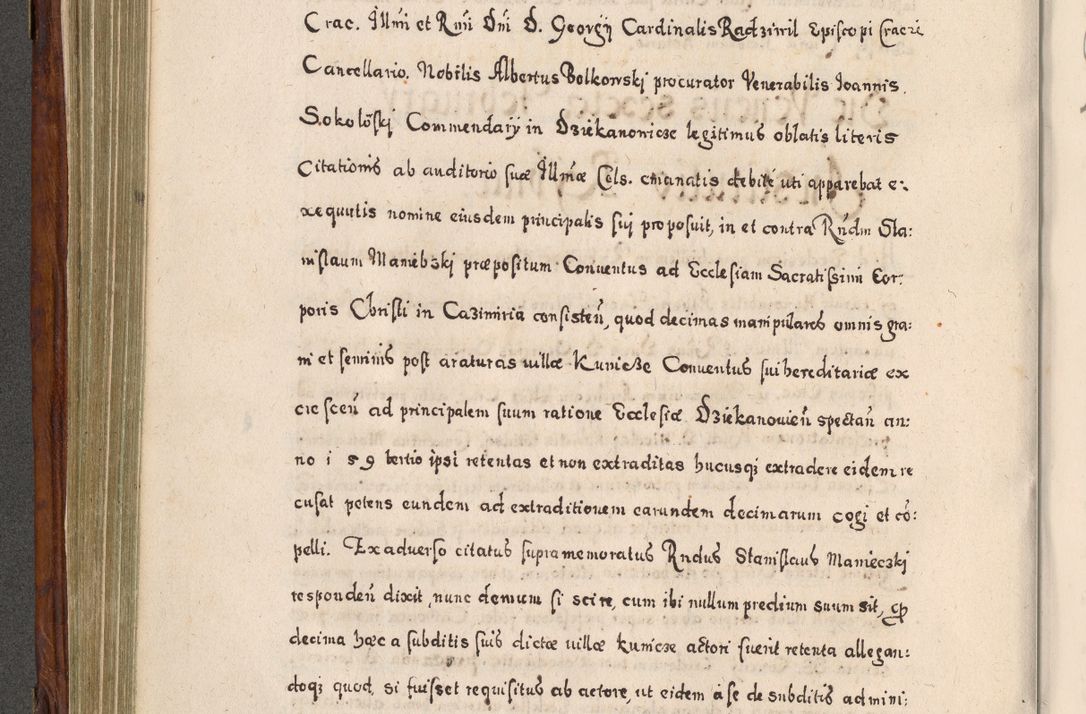 Crac. Illmi et Rmi Dni D. Georgij Cardinalis Radziwil Episcopi Cracen̄
Cancellario. Nobilis Albertus Bolkowski procurator Venerabilis Joannis
Sokolōski Commendarij in Dziekanowicze legitimus oblatis literis
Citationis ab auditorio suæ Illmæ Cels. emanatis debite uti apparebat e:
xequutis nomine eiusdem principalis sui proposuit, in et contra Rńdm Sta:
nislaum Maniebzki præpositum Conuentus ad Ecclesiam Sacratissimi Cor:
poris Christi in Cazimiria consisteñ, quod decimas manipulares omnis gra:
ni et seminis post araturas uillæ Kunicze Conuentus sui hereditariæ ex
cresceñ ad principalem suum ratione Ecclesiæ Dziekanouieñ spectañ an:
no 159 tertio ipsi retentas et non extraditas hucusq; extradere eidem re
cusat petens eundem ad extraditionem earundem decimarum cogi et cō:
pelli. Ex aduerso citatus supramemoratus Rndus Stanislaus Manieczki
respondeñ dixit, nunc demum si scire, cum ibi nullum predium suum sit, qp
decima hæc a subditis suis dictæ uillæ Kunicze actori fuerit retenta allegan:
doq; quod, si fuisset requisitus ab actore, ut eidem a se de subditis admini: